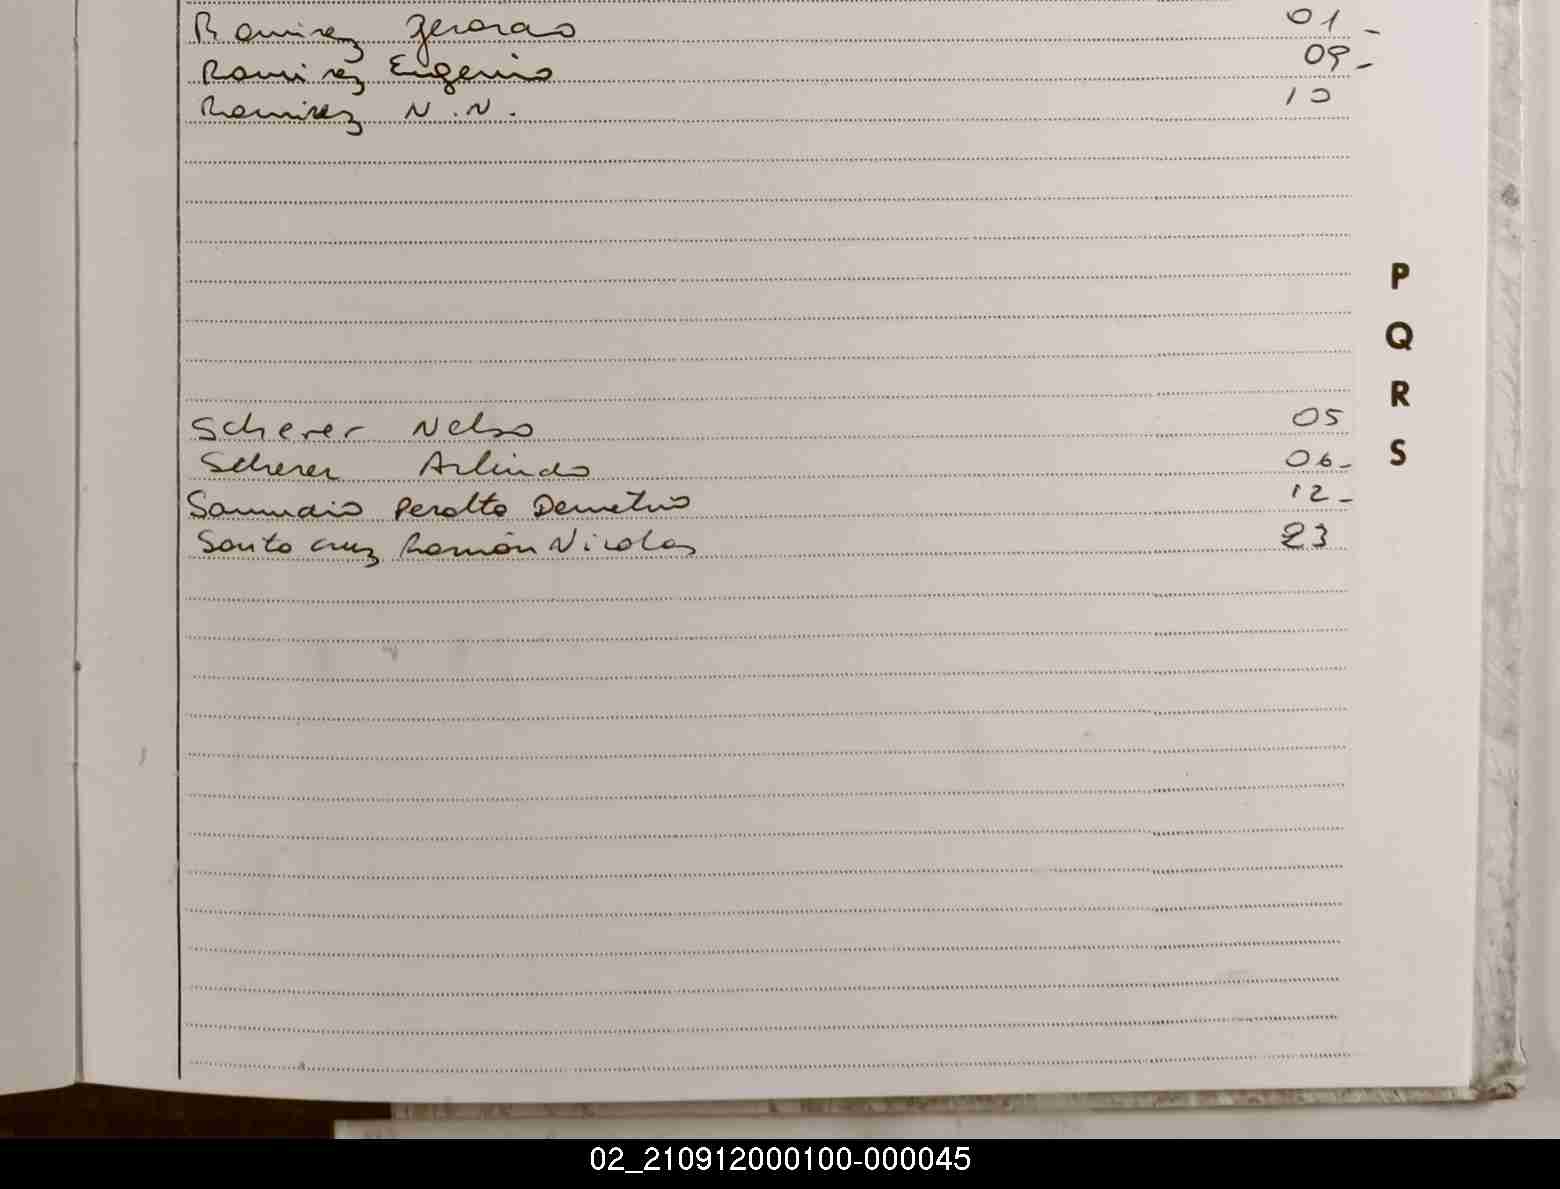 Ramirez Gerardo 01 -
Ramirez Eugenio 09 -
Ramirez N.N. 10
P
Q
R
S
Scherer Nelso 05
Scherer Arlindo 06 -
Samudio Peralta Demetrio 12 -
Santa cruz Ramón Nicolas 23
02_210912000100-000045